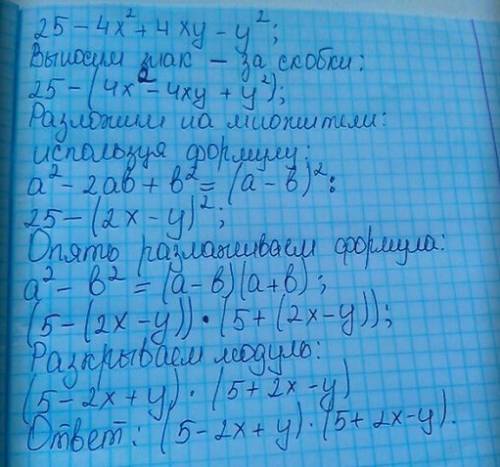 25 - 4x² + 4xy - y²;
Выносим знак - за скобки:
25 - (4x² - 4xy + y²);
Разложим на множители:
используя формулу:
a² - 2ab + b² = (a - b)²:
25 - (2x - y)²;
Опять разлаживаем формула:
a² - b² = (a - b)(a + b);
(5 - (2x - y)) · (5 + (2x - y));
Разкрываем модуль:
(5 - 2x + y) · (5 + 2x - y)
Ответ: (5 - 2x + y) · (5 + 2x - y).